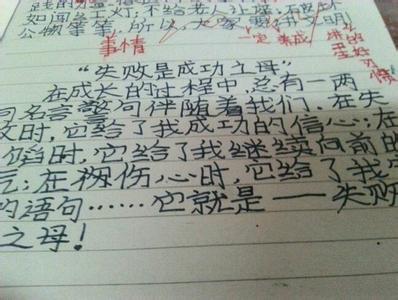 如闯红灯,不给老人让座,破坏
公物等等,所以,大家要讲文明
事情 一定 养成 讲卫生的好习惯
“失败是成功之母”
在成长的过程中,总有一两
句名言警句伴随着我们.在失
败时,它给了我成功的信心;在
陷时,它给了我继续向前的
气;在我伤心时,它给了我安
的语句……它就是——失败
之母!